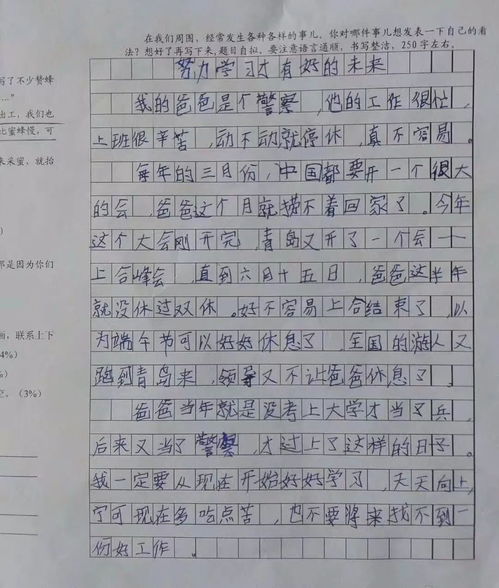 在我们周围，经常发生各种各样的事儿。你对哪件事儿想发表一下自己的看
法？想好了再写下来，题目自拟。要注意语言通顺，书写整洁，250字左右。
写了不少赞蜂
出工，我们也
比蜜蜂慢，可
来采蜜，就抬
那是因为你们
联系上下
4%）
（3%）
努力学习才有好的未来
我的爸爸是个警察，他的工作很忙，
上班很辛苦，动不动就停休，真不容易。
每年的三月份，中国都要开一个很大
的会，爸爸这个月就捞不着回家了。今年
这个大会刚开完，青岛又开了一个会——
上合峰会，直到六月十五日，爸爸这半年
就没休过双休。好不容易上合结束了，以
为端午节可以好好休息了，全国的游人又
跑到青岛来，领导又不让爸爸休息了。
爸爸当年就是没考上大学才当了兵，
后来又当了警察，才过上了这样的日子。
我一定要从现在开始好好学习，天天向上，
宁可现在多吃点苦，也不要将来找不到一
份好工作。